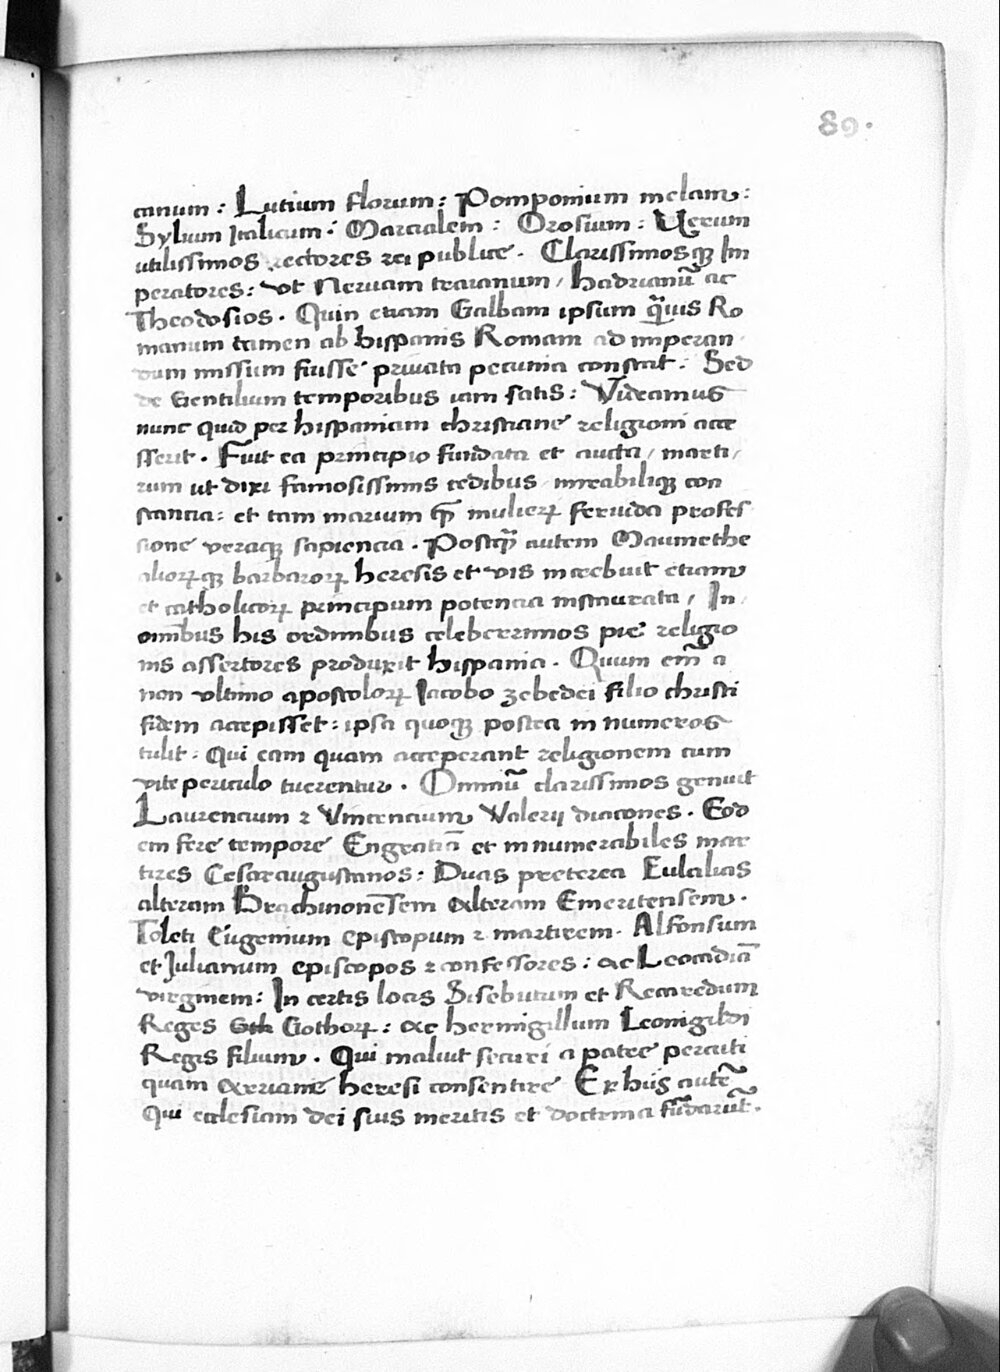 89.
canum: Lutium florum: Pomponium melam:
Sylium Italicum: Martialem: Orosium: Uerum
utilissimos rectores rei publice. Clarissimosqꝫ Im
peratores: vt Neruam traianum, hadrianū ac
Theodosios. Quin etiam Galbam ipsum q̄uis Ro
manum tamen ab hispanis Romam ad imperan
dum missum fuisse priuata pecunia constat. Sed
de Gentilium temporibus iam satis: Videamus
nunc quid per hispaniam christiane religioni acce
sserit. Fuit ea principio fundata et aucta, marti,
rum ut dixi famosissimis cedibus mirabiliqꝫ con
stantia: et tam marium qꝫ̄ mulierꝝ feruida profes
sione veraqꝫ sapiencia. Postq̄ autem Maumethe
aliorꝝqꝫ barbarorꝝ heresis et vis increbuit etiam
et catholicorꝝ principum potencia instaurata, In,
omnibus his ordinibus celeberrimos pie religio
nis assertores produxit hispania. Quum em̄ a
non vltimo apostolorꝝ Iacobo zebedei filio christi
fidem accepisset: ipsa quoqꝫ postea in numeros
tulit: Qui eam quam acceperant religionem cum
vite periculo tuerentur. Omniū clarissimos genuit
Laurencium ꝛ Vincencium Valerij diacones. Eod
em fere tempore Engratiā et in numerabiles mar
tires Cesaraugustanos: Duas preterea Eulalias
alteram Brachinonēsem Alteram Emeritensem.
Toleti Eugenium episcopum ꝛ martirem. Alfonsum
et Julianum episcopos ꝛ confessores: ac Leocadiā
virginem: In certis locis Sisebutum et Recaredum
Reges Gothorꝝ: Ac hermigillum Leonigildi
Regis filium. Qui maluit securi a patre percuti
quam Arriane heresi consentire Ex hijs autē
Qui ecclesiam dei suis meritis et doctrina fūdarūt.